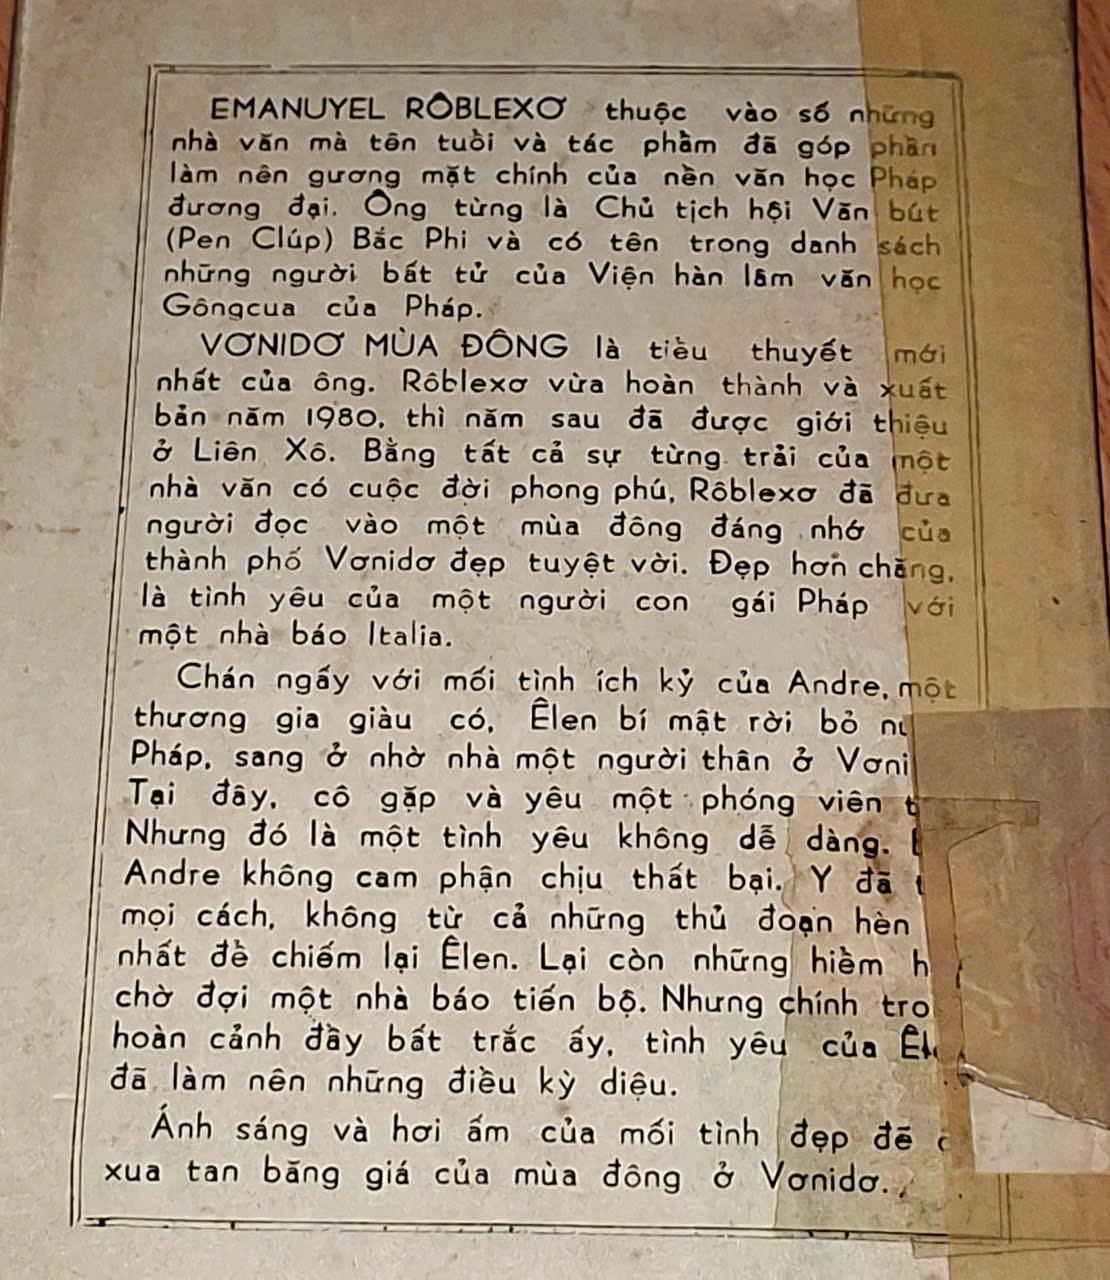 EMANUYEL RÔBLEXƠ thuộc vào số những
nhà văn mà tên tuổi và tác phẩm đã góp phần
làm nên gương mặt chính của nền văn học Pháp
đương đại. Ông từng là Chủ tịch hội Văn bút
(Pen Clúp) Bắc Phi và có tên trong danh sách
những người bất tử của Viện hàn lâm văn học
Gôngcua của Pháp.
VƠNIDƠ MÙA ĐÔNG là tiểu thuyết mới
nhất của ông. Rôblexơ vừa hoàn thành và xuất
bản năm 1980, thì năm sau đã được giới thiệu
ở Liên Xô. Bằng tất cả sự từng trải của một
nhà văn có cuộc đời phong phú, Rôblexơ đã đưa
người đọc vào một mùa đông đáng nhớ của
thành phố Vơnidơ đẹp tuyệt vời. Đẹp hơn chăng,
là tình yêu của một người con gái Pháp với
một nhà báo Italia.
Chán ngấy với mối tình ích kỷ của Andre, một
thương gia giàu có, Êlen bí mật rời bỏ
Pháp, sang ở nhờ nhà một người thân ở Vơni
Tại đây, cô gặp và yêu một phóng viên
Nhưng đó là một tình yêu không dễ dàng.
Andre không cam phận chịu thất bại. Y đã
mọi cách, không từ cả những thủ đoạn hèn
nhất để chiếm lại Êlen. Lại còn những hiểm
chờ đợi một nhà báo tiến bộ. Nhưng chính tro
hoàn cảnh đầy bất trắc ấy, tình yêu của
đã làm nên những điều kỳ diệu.
Ánh sáng và hơi ấm của mối tình đẹp đẽ
xua tan băng giá của mùa đông ở Vơnidơ.